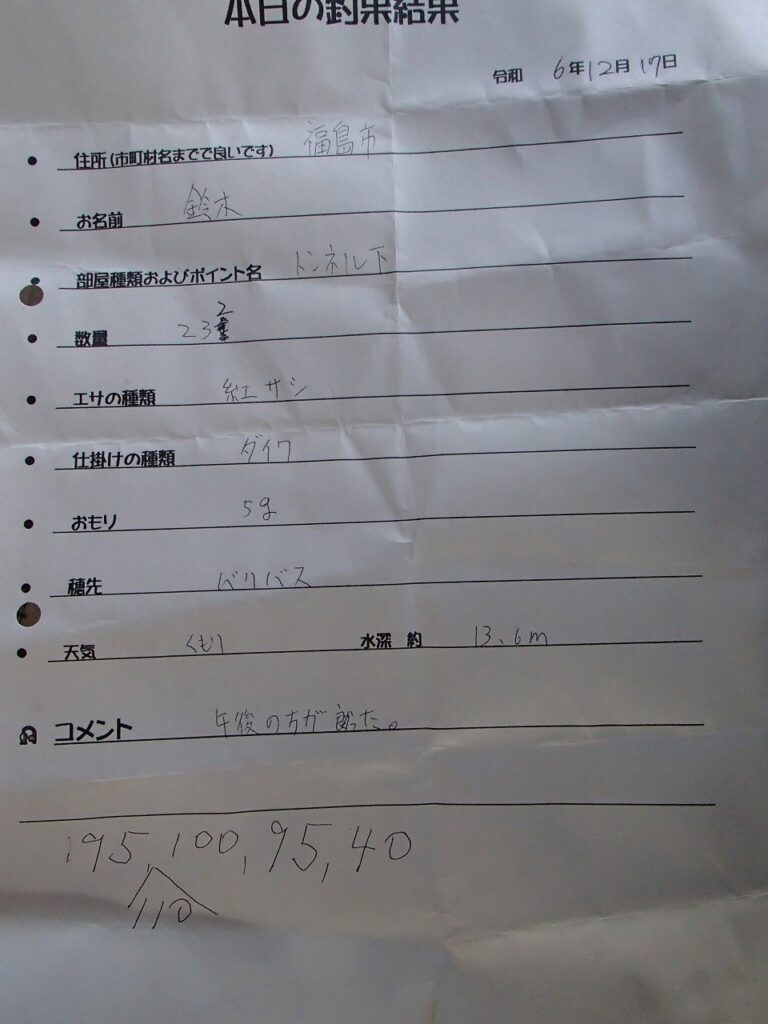 本日の釣果結果
令和 6年12月17日
住所(市町村名までで良いです) 福島市
お名前 鈴木
部屋種類およびポイント名 トンネル下
数量 232
エサの種類 紅サシ
仕掛けの種類 ダイワ
おもり 5g
穂先 バリバス
天気 くもり 水深 約 13.6m
コメント 午後の方が釣った。
195,100,95,40
110